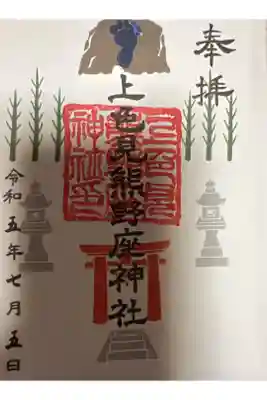 奉拝
上色見熊野座神社
令和五年七月五日